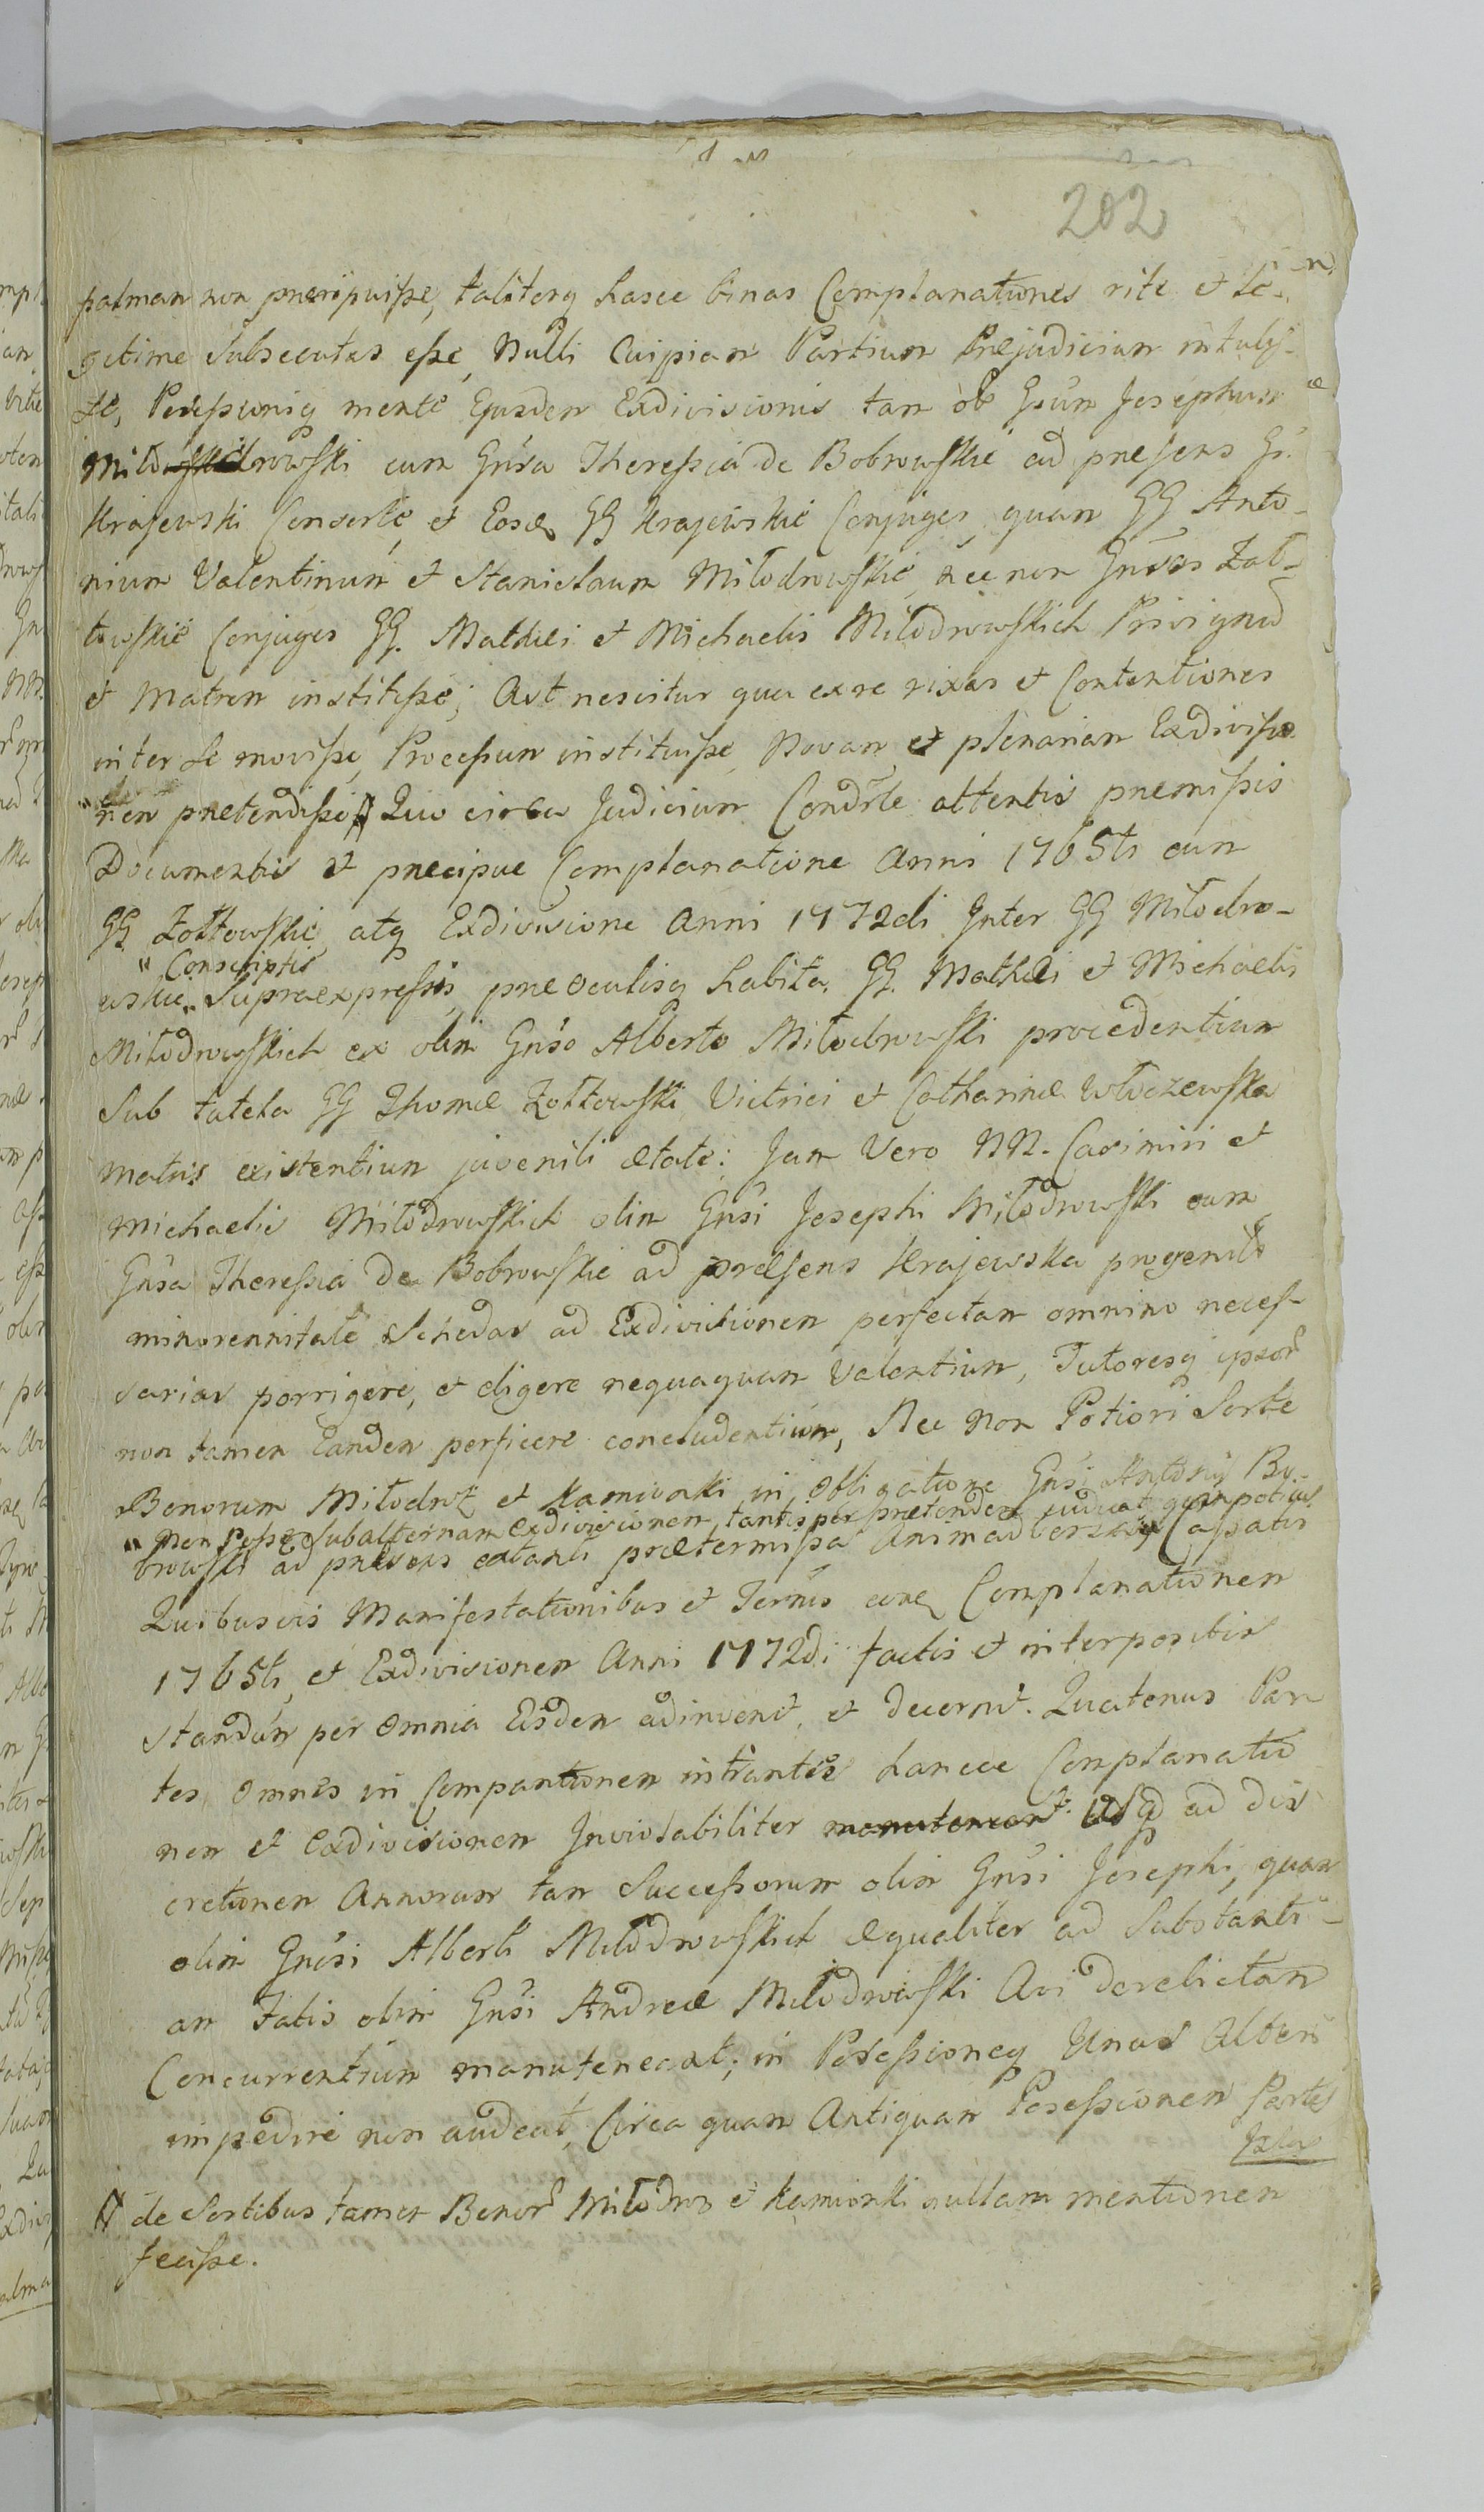 202
palmam non præripuisse, taliterq hasce binas Complanationes rite et le-
gitime Subsecutas esse, Nulli Cuipiam Partium Præjudicium intulis-
se, Possessioniq mente Ejusdem Exdivisionis tam ob Gsum Josephum
Miłodrowski cum Gnsa Theressia de Bobrowskie ad præsens Gi.
Krajewski Consorte, et Eosd GG Krajewskie Conjuges, quam GG Anto-
nium Valentinum et Stanislaum Miłodrowskie, nec non Gnsos Żoł-
towskie Conjuges GG. Mathæi et Michaelis Miłodrowskich Privignū
et Matrem institisse; Ast nescitur qua ex re rixas et Contentiones
inter Se movisse, Processum instituisse, Novam et plenariam Exdivisio
nem prætendisse, Quo circa Judicium Condrle attentis præmissis
Documentis et præcipue Complanatione Anni 1765ti cum
GG Żołtowskie, atq Exdivisione Anni 1772di Inter GG Miłodro-
"Conscriptis
wskie Supraexpressis, præ oculisq habita, GG. Mathæi et Michaelis
Miłodrowskich ex olim Gnso Alberto Miłodrowski procedentium
Sub tutela GG Thomæ Żołtowski Vitrici et Catharinæ Włoczewska
matris existentium juvenili ætate: Jam Vero NN. Casimiri et
Michaelis Miłodrowskich olim Gnsi Josephi Miłodrowski cum
Gnsa Theressia de Bobrowskie ad præsens Krajewska progenit
minorennitate Schedas ad Exdivisionem perfectam omnino neces-
sarias porrigere, et eligere nequaquam Valentium, Tutoresq ipsor
non tamen Eandem perficere concludentium, Nec non Potiori Sorte
Bonorum Miłodroz et Kamionki in obligatione Gnsi Antonij Bo-
"Non Posse Subalternam Exdivisionem, tantisper prætendere judicat quin potius
browski ad præsens extanti prætermissa Animadversis Cassatis
Quibusvis Manifestationibus et Ternis Complanationem
1765ti, et Exdivisionem Anni 1772di factis et interpositis
Standum per Omnia Eisdem adinvenit, et decernit. Quatenus Par
tes Omnes in Comparitionem intrantes hancce Complanatio
nem et Exdivisionem Inviolabiliter Usq ad dis
cretionem Annorum tam Successorum olim Gnsi Josephi, quam
olim Gnsi Alberti Miłodrowskich æqualiter ad Substanti-
am Fatis olim Gnsi Andreæ Miłodrowski Avi derelictam
Concurrentium manuteneant; in Possessioneq Unus Alteri
impedire non audeat, Circa quam Antiquam Possessionem Partes
# de Sortibus tamen Bonor Miłodroz et Kamionki nullam mentionem
fecisse.